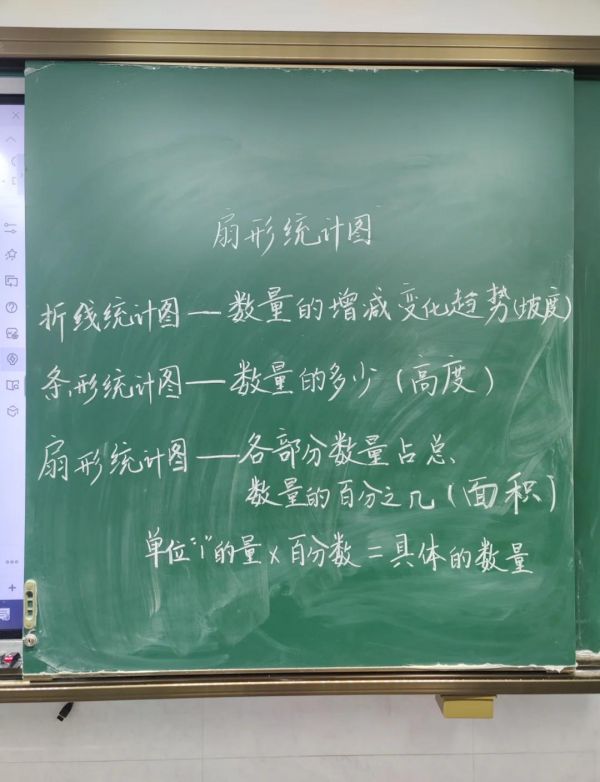 扇形统计图
折线统计图—数量的增减变化趋势(坡度)
条形统计图—数量的多少(高度)
扇形统计图—各部分数量占总
数量的百分之几(面积)
单位“1”的量×百分数=具体的数量